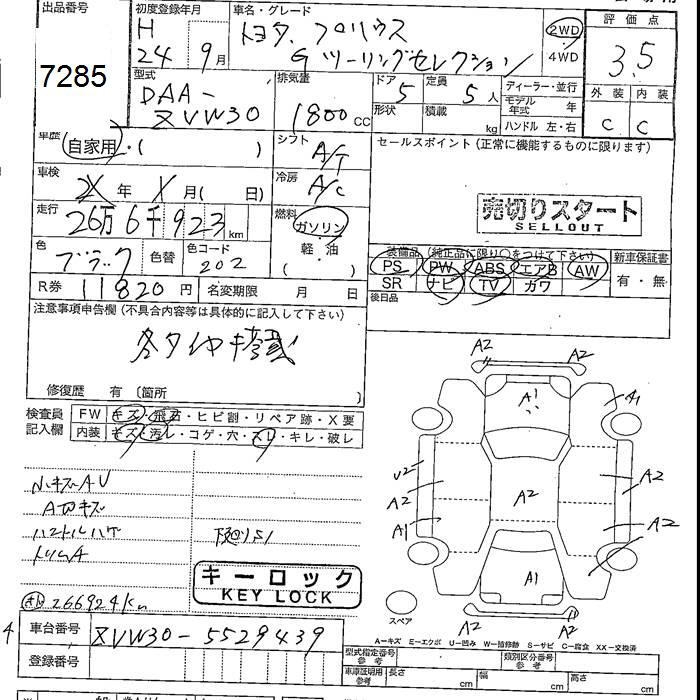 出品番号
7285
初度登録年月
H
24 9月
車名・グレード
トヨタ プリウス
Gツーリングセレクション
2WD
4WD
評価点
3.5
外装 内装
C C
型式
DAA-
ZVW30
排気量
1800 cc
ドア
5
定員
5人
形状
積載
kg
ディーラー・並行
モデル年式 年
ハンドル 左・右
車歴
自家用・( )
シフト
A/T
セールスポイント(正常に機能するものに限ります)
車検
年 月( 日)
冷房
A/C
売切りスタート
SELLOUT
走行
26万6千923km
燃料
ガソリン
軽・油
( )
色
ブラック
色替
色コード
202
装備品(純正品に限り○をつけて下さい)
新車保証書
PS PW ABS エアB AW
SR ナビ TV カワ
有・無
後日品
R券 11820円
名変期限 月 日
注意事項申告欄(不具合内容等は具体的に記入して下さい)
冬タイヤ
修復歴 有〔箇所
検査員
記入欄
FW キズ・飛石・ヒビ割・リペア跡・X要
内装 キズ・汚レ・コゲ・穴・スレ・キレ・破レ
ハンドルハゲ
266924km
キーロック
KEY LOCK
A2 A2
A1
A1
U2 A2
A2 A2
A1 A2
A1
スペア
A2 A2
A-キズ E-エクボ U-凹み W-補修跡 S-サビ C-腐食 XX-交換済
車台番号 ZVW30-5529439
登録番号
型式指定番号
参考
類別区分番号
参考
車庫証明用
参考
長さ cm
幅 cm
高さ cm